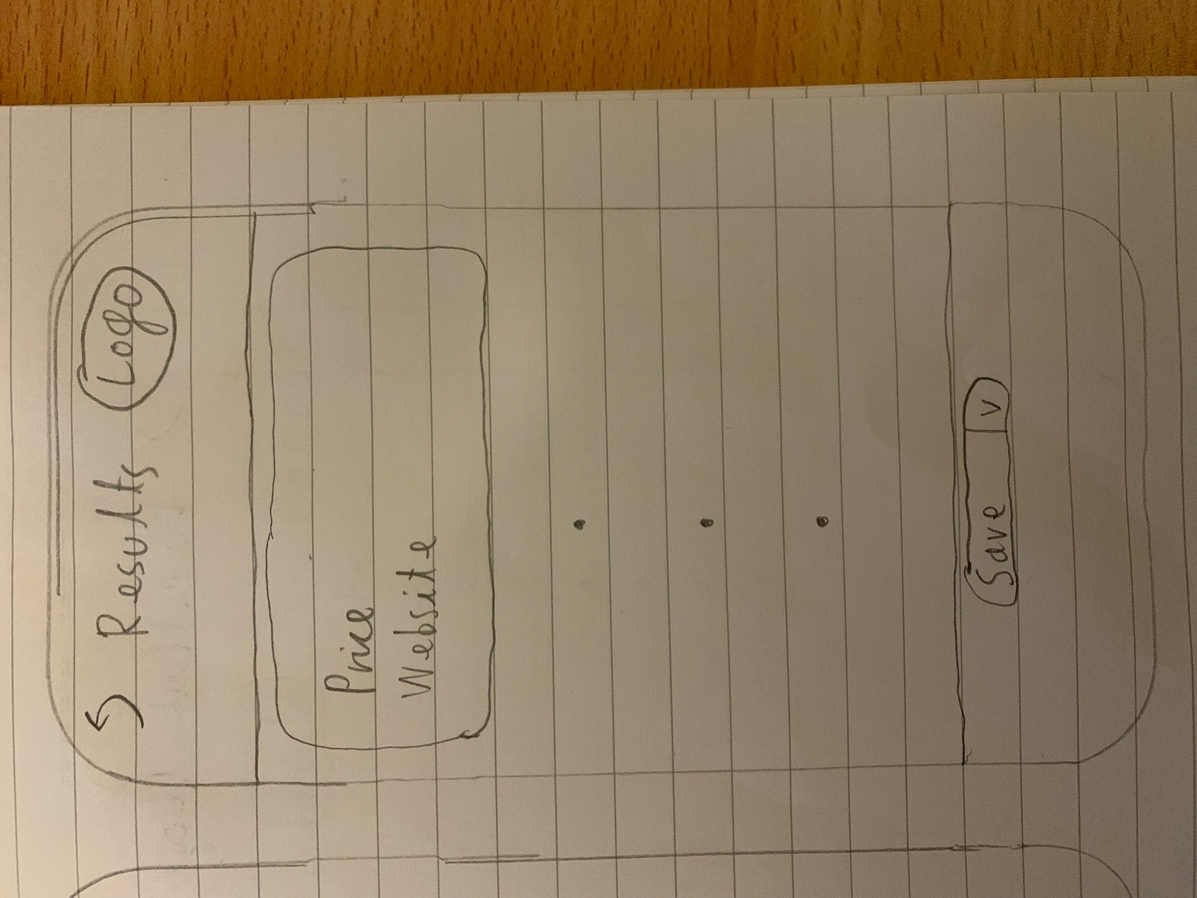 Results Logo
Price
Website
Save V